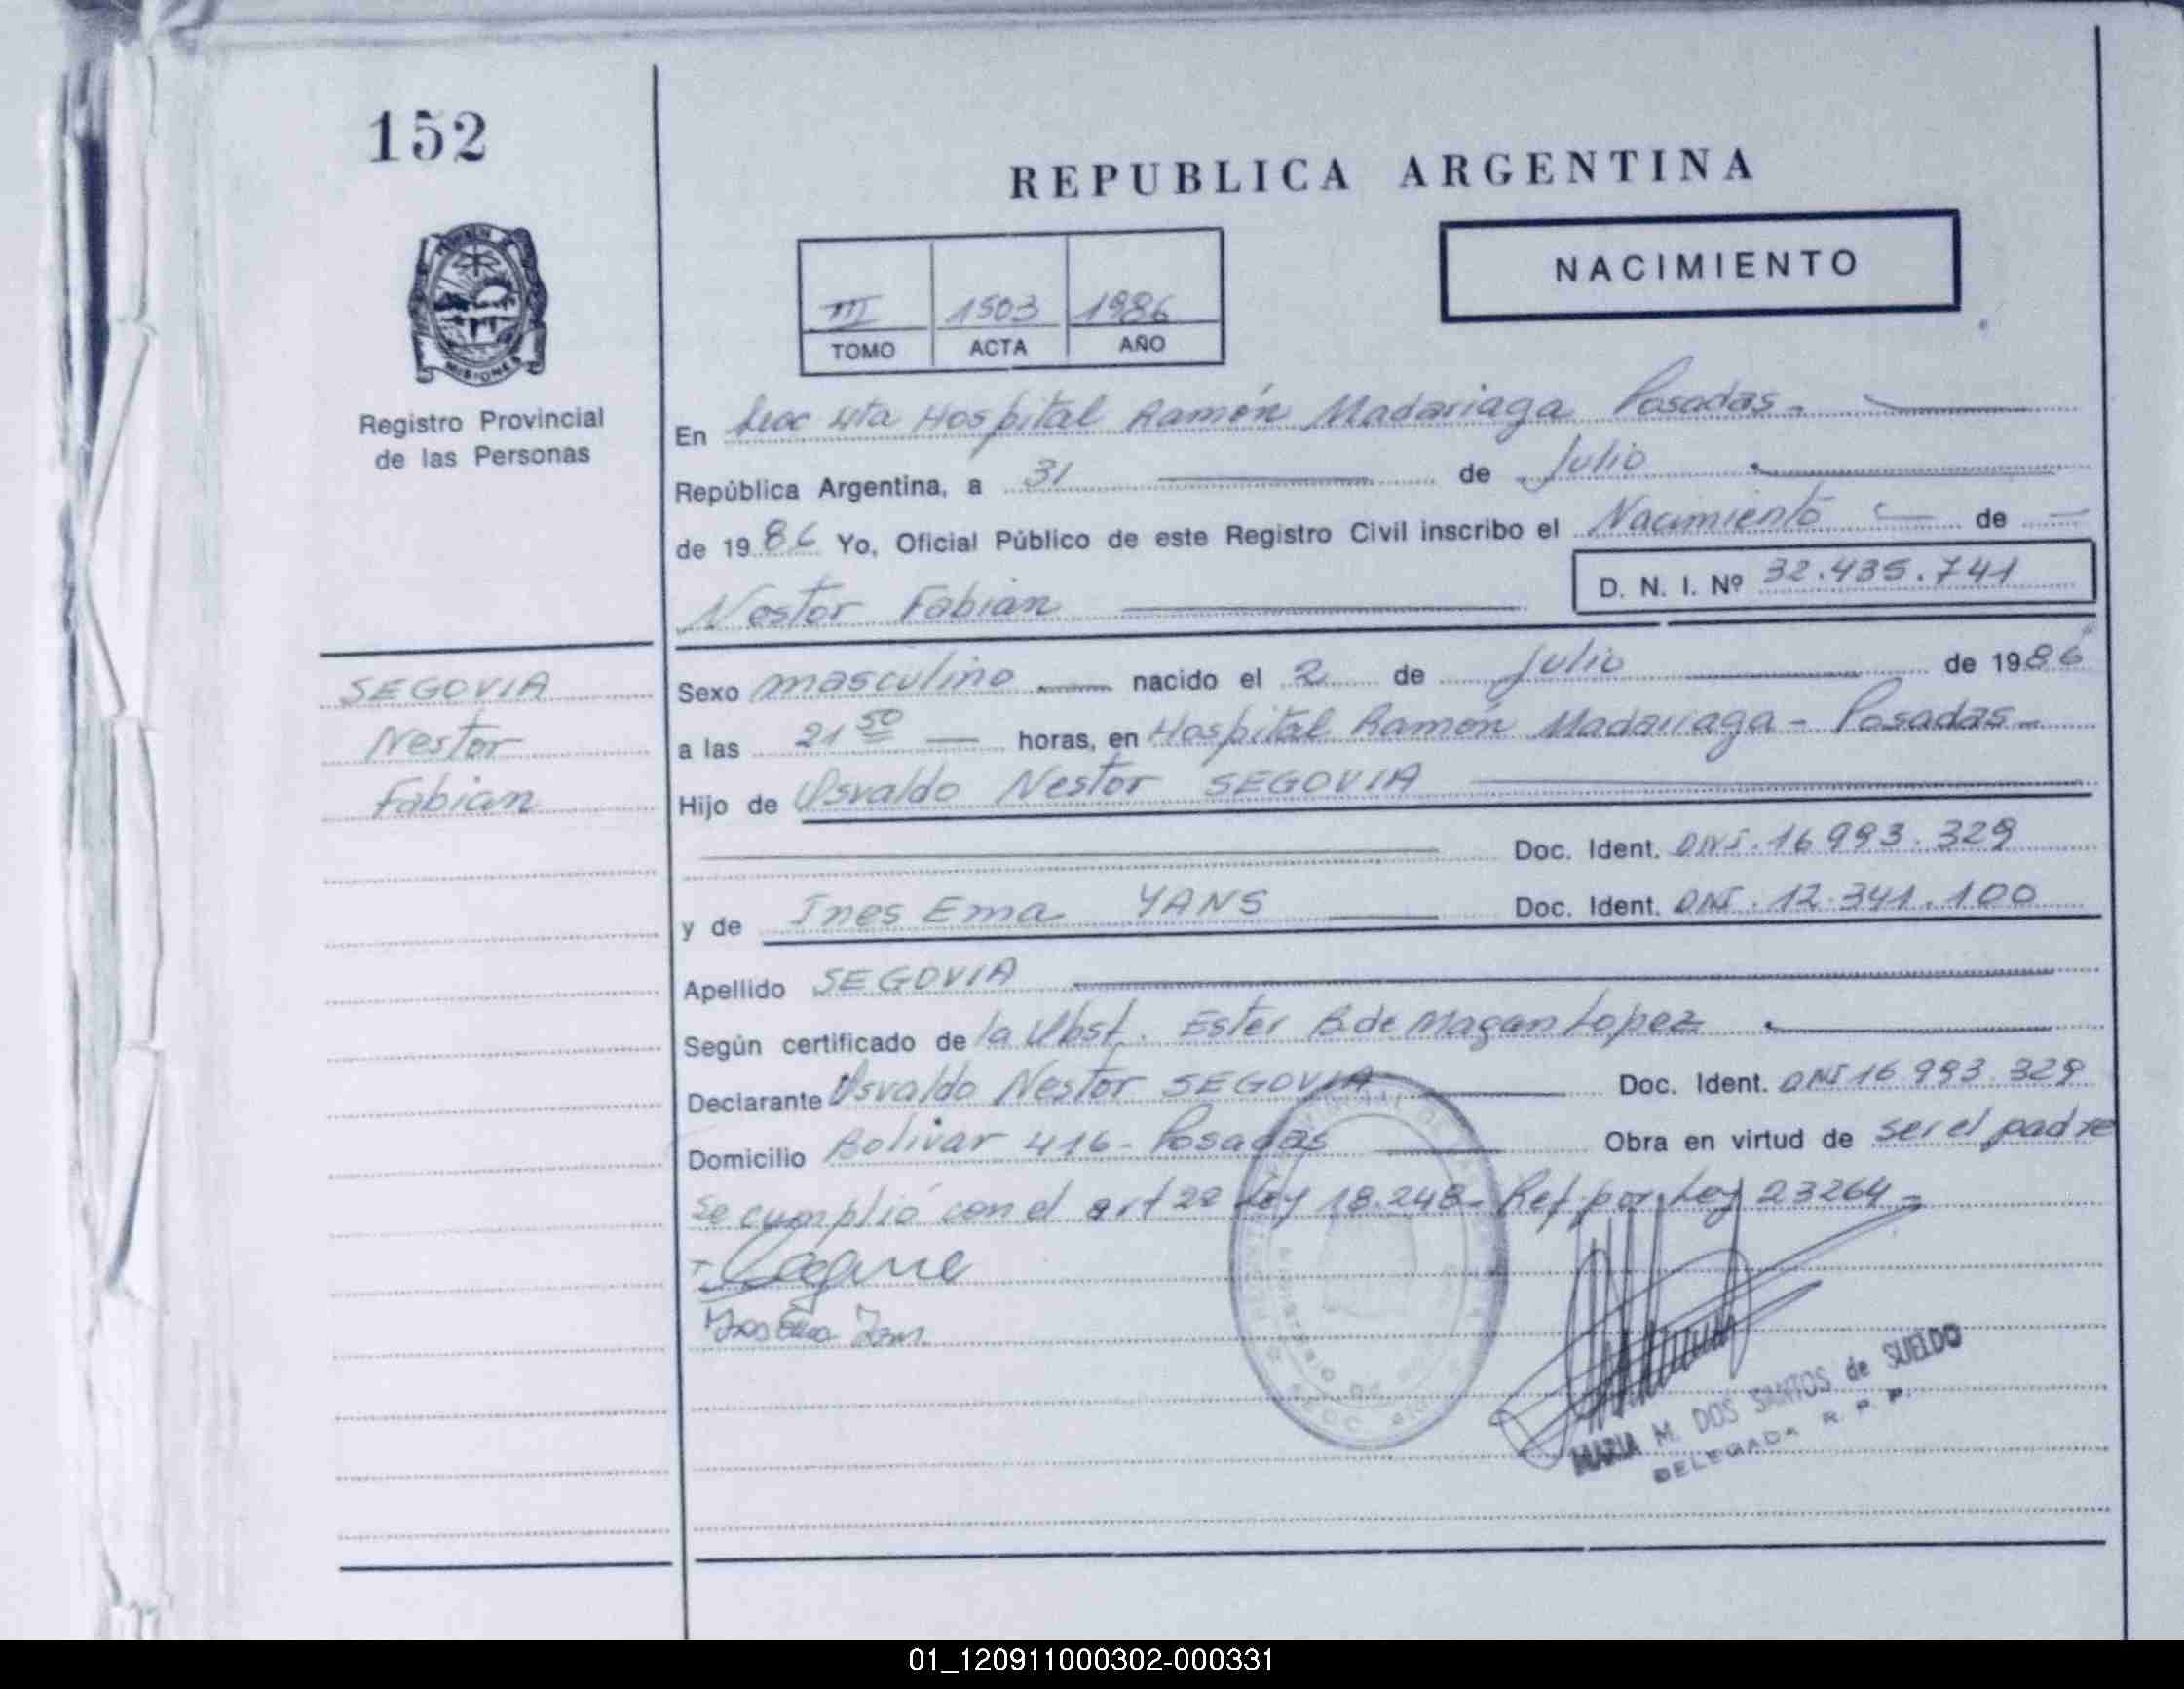 152
REPUBLICA ARGENTINA
NACIMIENTO
III 1503 1986
TOMO ACTA AÑO
MISIONES
Registro Provincial
de las Personas
En Secc 4ta Hospital Ramón Madariaga Posadas -
República Argentina, a 31 de Julio
de 1986 Yo, Oficial Público de este Registro Civil inscribo el Nacimiento de
Nestor Fabian D. N. I. Nº 32.435.741
SEGOVIA
Nestor
Fabian
Sexo masculino nacido el 2 de Julio de 1986
a las 21 50 horas, en Hospital Ramón Madariaga - Posadas -
Hijo de Osvaldo Nestor SEGOVIA
Doc. Ident. DNI. 16 993. 329
y de Ines Ema YANS Doc. Ident. DNI. 12.341.100
Apellido SEGOVIA
Según certificado de la Obst. Ester B. de Magan Lopez
Declarante Osvaldo Nestor SEGOVIA Doc. Ident. DNI 16 993. 329
Domicilio Bolivar 416 - Posadas Obra en virtud de ser el padre
se cumplió con el art 22 Ley 18.248 - Ref por Ley 23264 -
MARIA M. DOS SANTOS de SUELDO
DELEGADA R. P. P.
01_120911000302-000331